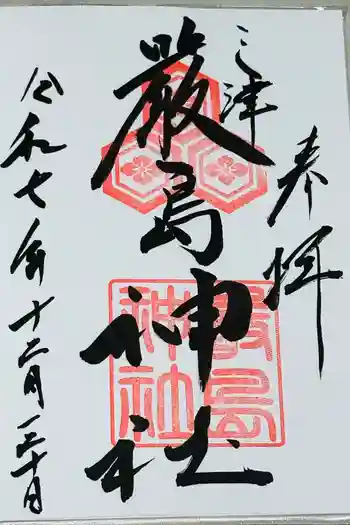 奉拝
三津
嚴島神社
嚴島
神社
令和七年十二月三十日